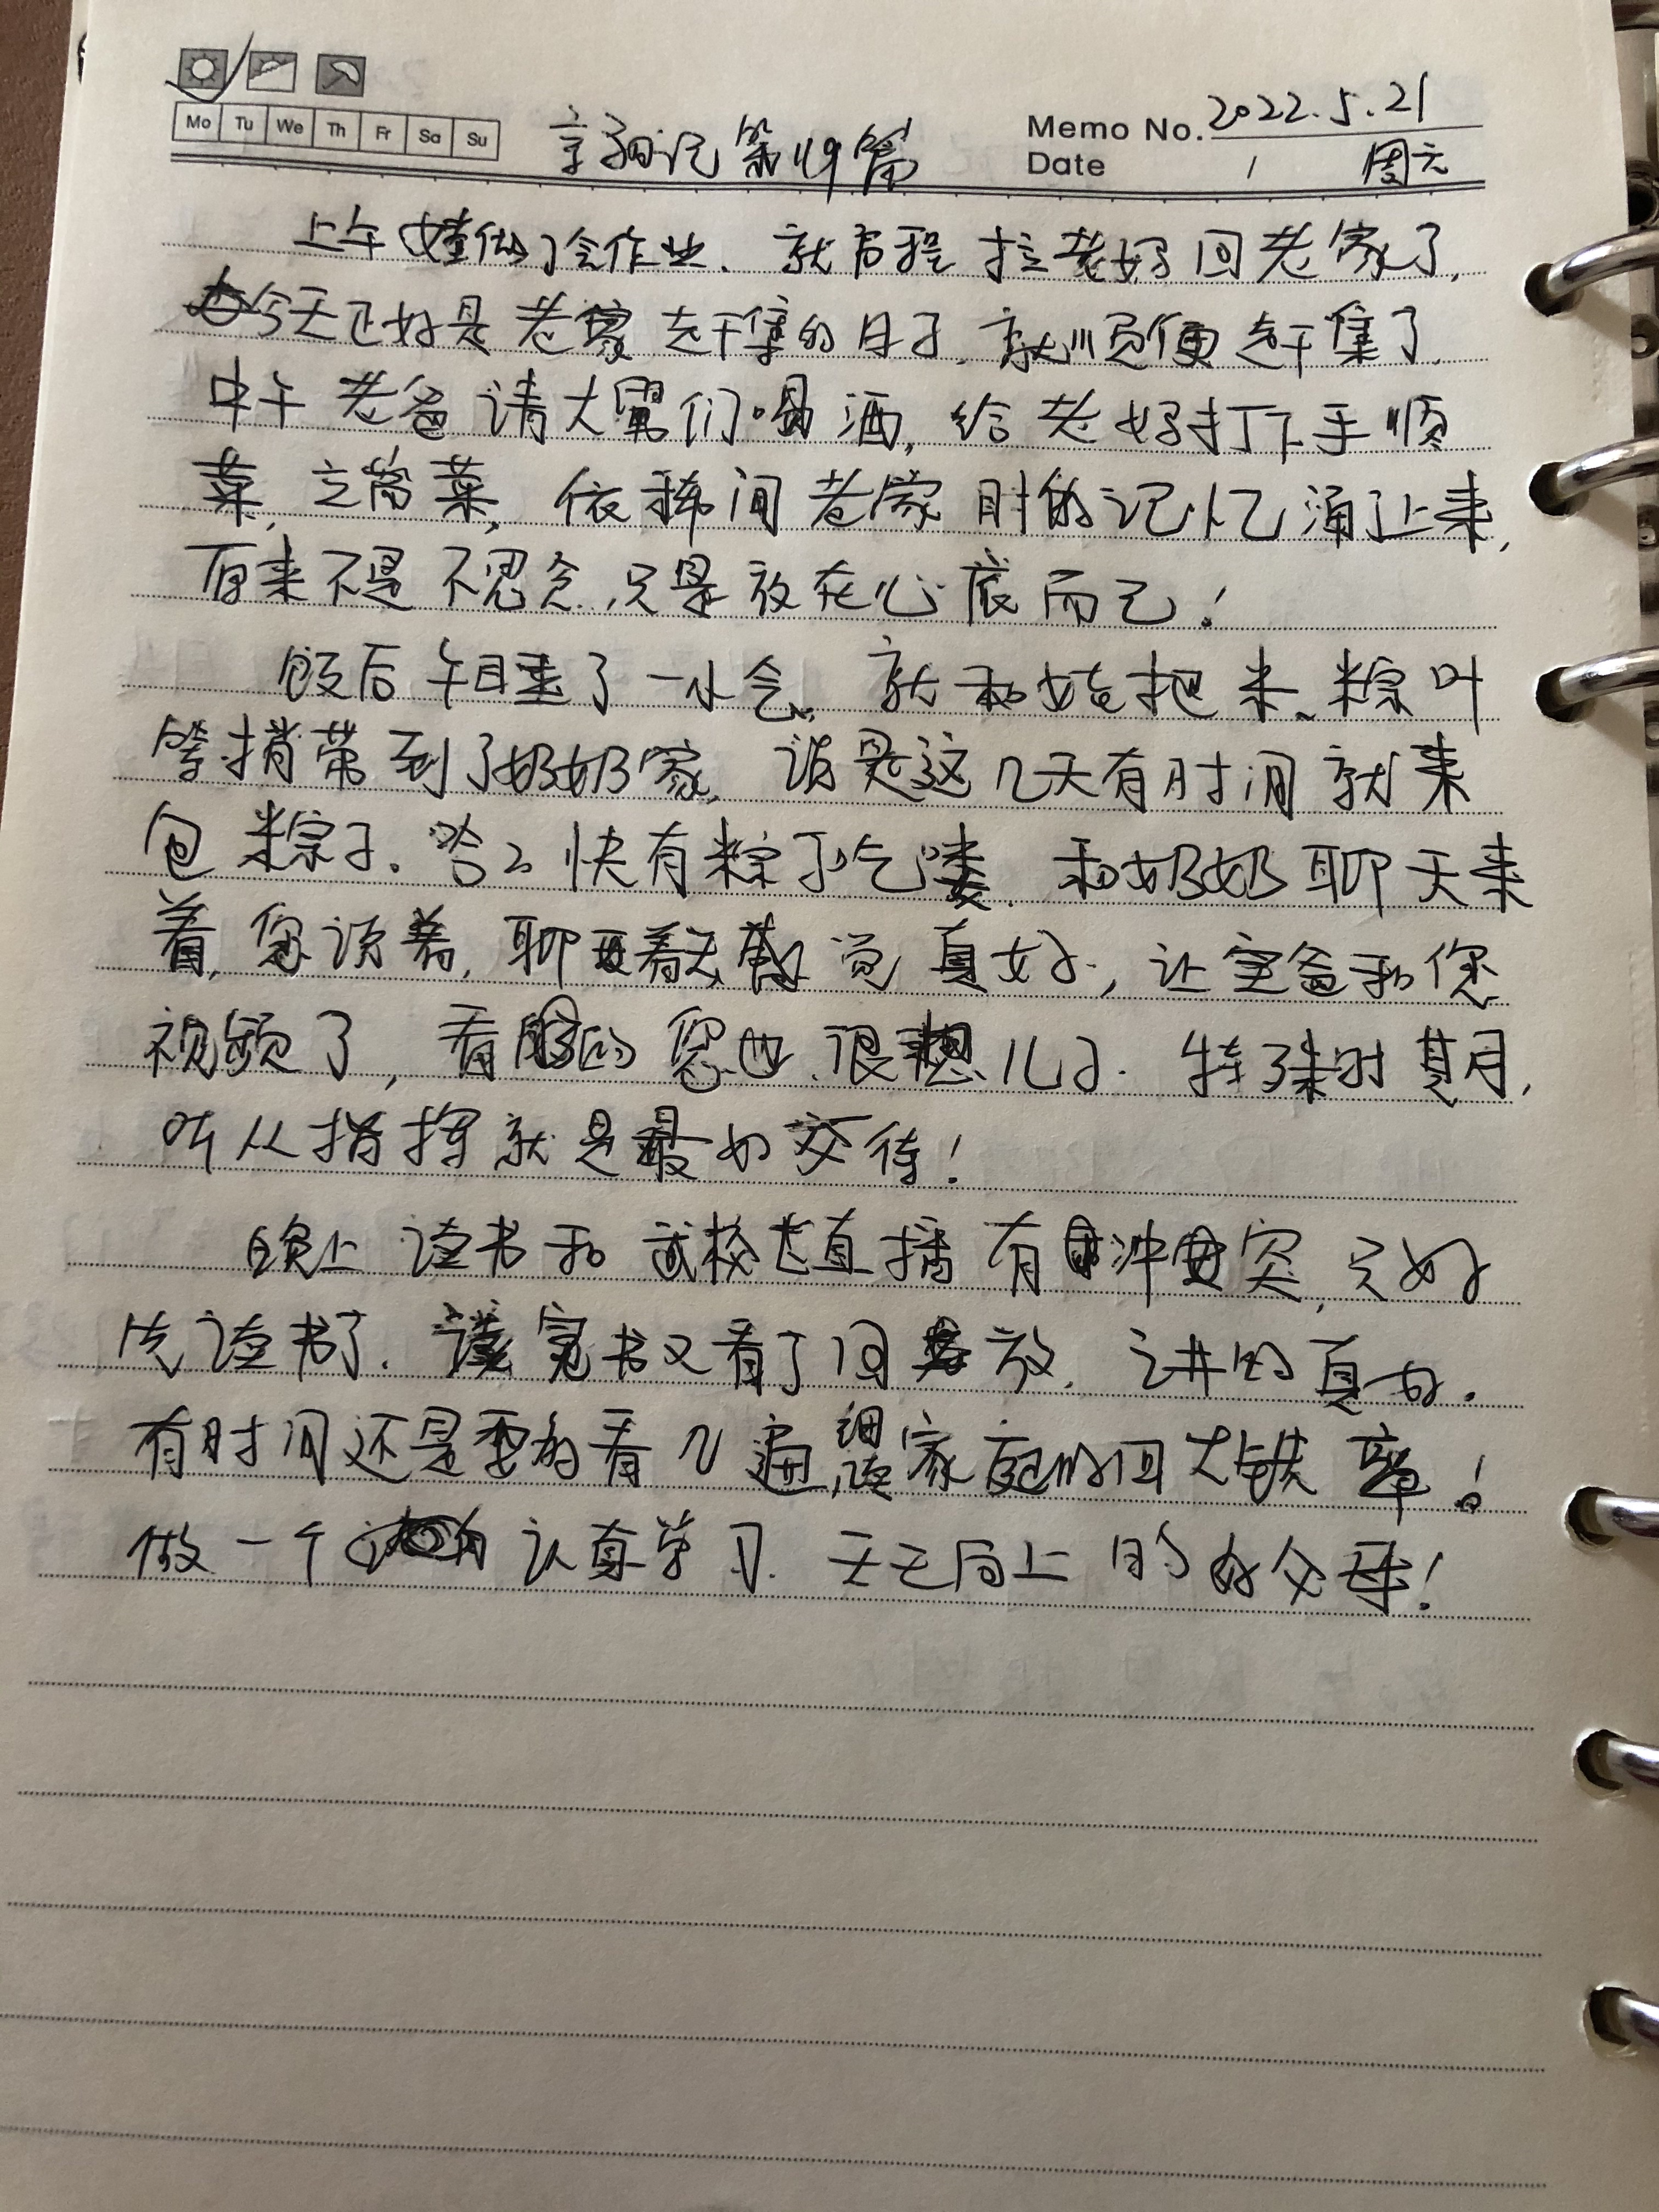 Mo Tu We Th Fr Sa Su
Memo No. 2022.5.21
幸福记第119篇
Date 1 周六
上午娃做了会作业,就启程拉老妈回老家了,
今天正好是老家赶集的日子,就顺便赶集了.
中午老爸请大舅们喝酒,给老妈打下手顺
菜,立菜,依稀间老家时的记忆涌上来,
原来不是不思念,只是放在心底而已!
饭后午睡了一小会,就和娃把米、粽叶
等捎带到了奶奶家,说是这几天有时间就来
包粽子.哈哈快有粽子吃喽.和奶奶聊天来
着,您说着,聊着天说真好,让宝爸和您
视频了,看的您也很想儿子.特殊时期,
听从指挥就是最好交待!
晚上读书和武校长直播有冲突,只好
先读书了.读完书又看了回放,讲的真好.
有时间还是要的看几遍,调读家庭的回大铁率!
做一个认真学习.天天向上的好父母!